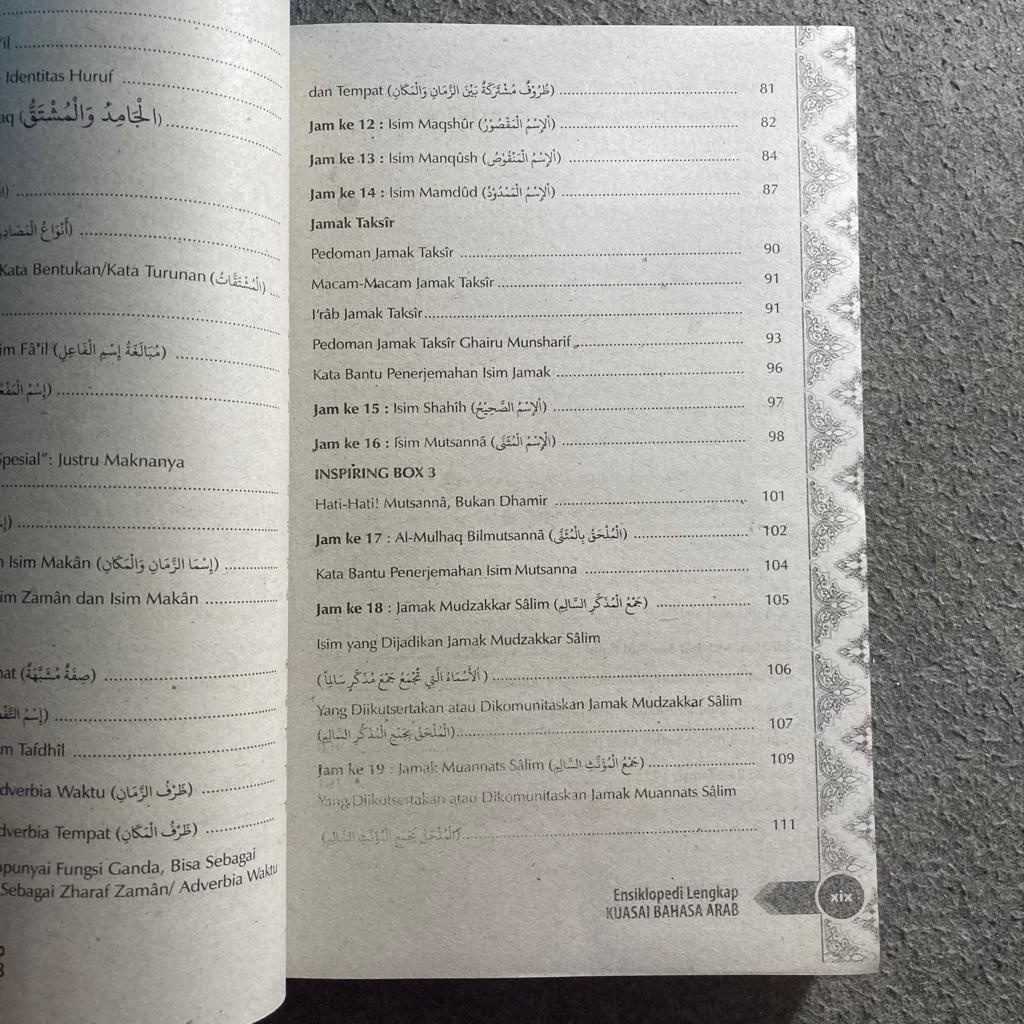 'il
Identitas Huruf
aq (الْجَامِدُ وَالْمُشْتَقُّ)
(أَنْوَاعُ الْمَصَادِ
Kata Bentukan/Kata Turunan (الْمُشْتَقَّاتُ)
im Fâ'il (مُبَالَغَةُ إِسْمِ الْفَاعِلِ)
(إِسْمُ الْمَفْعُ
Spesial": Justru Maknanya
n Isim Makân (إِسْمَا الزَّمَانِ وَالْمَكَانِ)
im Zamân dan Isim Makân
hat (صِفَةٌ مُشَبَّهَةٌ)
(إِسْمُ التَّفْ
m Tafdhîl
dverbia Waktu (ظَرْفُ الزَّمَانِ)
dverbia Tempat (ظَرْفُ الْمَكَانِ)
punyai Fungsi Ganda, Bisa Sebagai
Sebagai Zharaf Zamân/ Adverbia Waktu
dan Tempat (ظُرُوْفٌ مُشْتَرَكَةٌ بَيْنَ الزَّمَانِ وَالْمَكَانِ) 81
Jam ke 12 : Isim Maqshûr (اَلْإِسْمُ الْمَقْصُوْرُ) 82
Jam ke 13 : Isim Manqûsh (اَلْإِسْمُ الْمَنْقُوْصُ) 84
Jam ke 14 : Isim Mamdûd (اَلْإِسْمُ الْمَمْدُوْدُ) 87
Jamak Taksîr
Pedoman Jamak Taksîr 90
Macam-Macam Jamak Taksîr 91
I'râb Jamak Taksîr 91
Pedoman Jamak Taksîr Ghairu Munsharif 93
Kata Bantu Penerjemahan Isim Jamak 96
Jam ke 15 : Isim Shahîh (اَلْإِسْمُ الصَّحِيْحُ) 97
Jam ke 16 : Isim Mutsannã (اَلْإِسْمُ الْمُثَنَّى) 98
INSPIRING BOX 3
Hati-Hati! Mutsannâ, Bukan Dhamir 101
Jam ke 17 : Al-Mulhaq Bilmutsannã (اَلْمُلْحَقُ بِالْمُثَنَّى) 102
Kata Bantu Penerjemahan Isim Mutsanna 104
Jam ke 18 : Jamak Mudzakkar Sâlim (جَمْعُ الْمُذَكَّرِ السَّالِمِ) 105
Isim yang Dijadikan Jamak Mudzakkar Sâlim
(اَلْأَسْمَاءُ الَّتِي تُجْمَعُ جَمْعَ مُذَكَّرٍ سَالِمًا) 106
Yang Diikutsertakan atau Dikomunitaskan Jamak Mudzakkar Sâlim
(اَلْمُلْحَقُ بِجَمْعِ الْمُذَكَّرِ السَّالِمِ) 107
Jam ke 19 : Jamak Muannats Sâlim (جَمْعُ الْمُؤَنَّثِ السَّالِمِ) 109
Yang Diikutsertakan atau Dikomunitaskan Jamak Muannats Sâlim
(اَلْمُلْحَقُ بِجَمْعِ الْمُؤَنَّثِ السَّالِمِ) 111
Ensiklopedi Lengkap
KUASAI BAHASA ARAB
xix